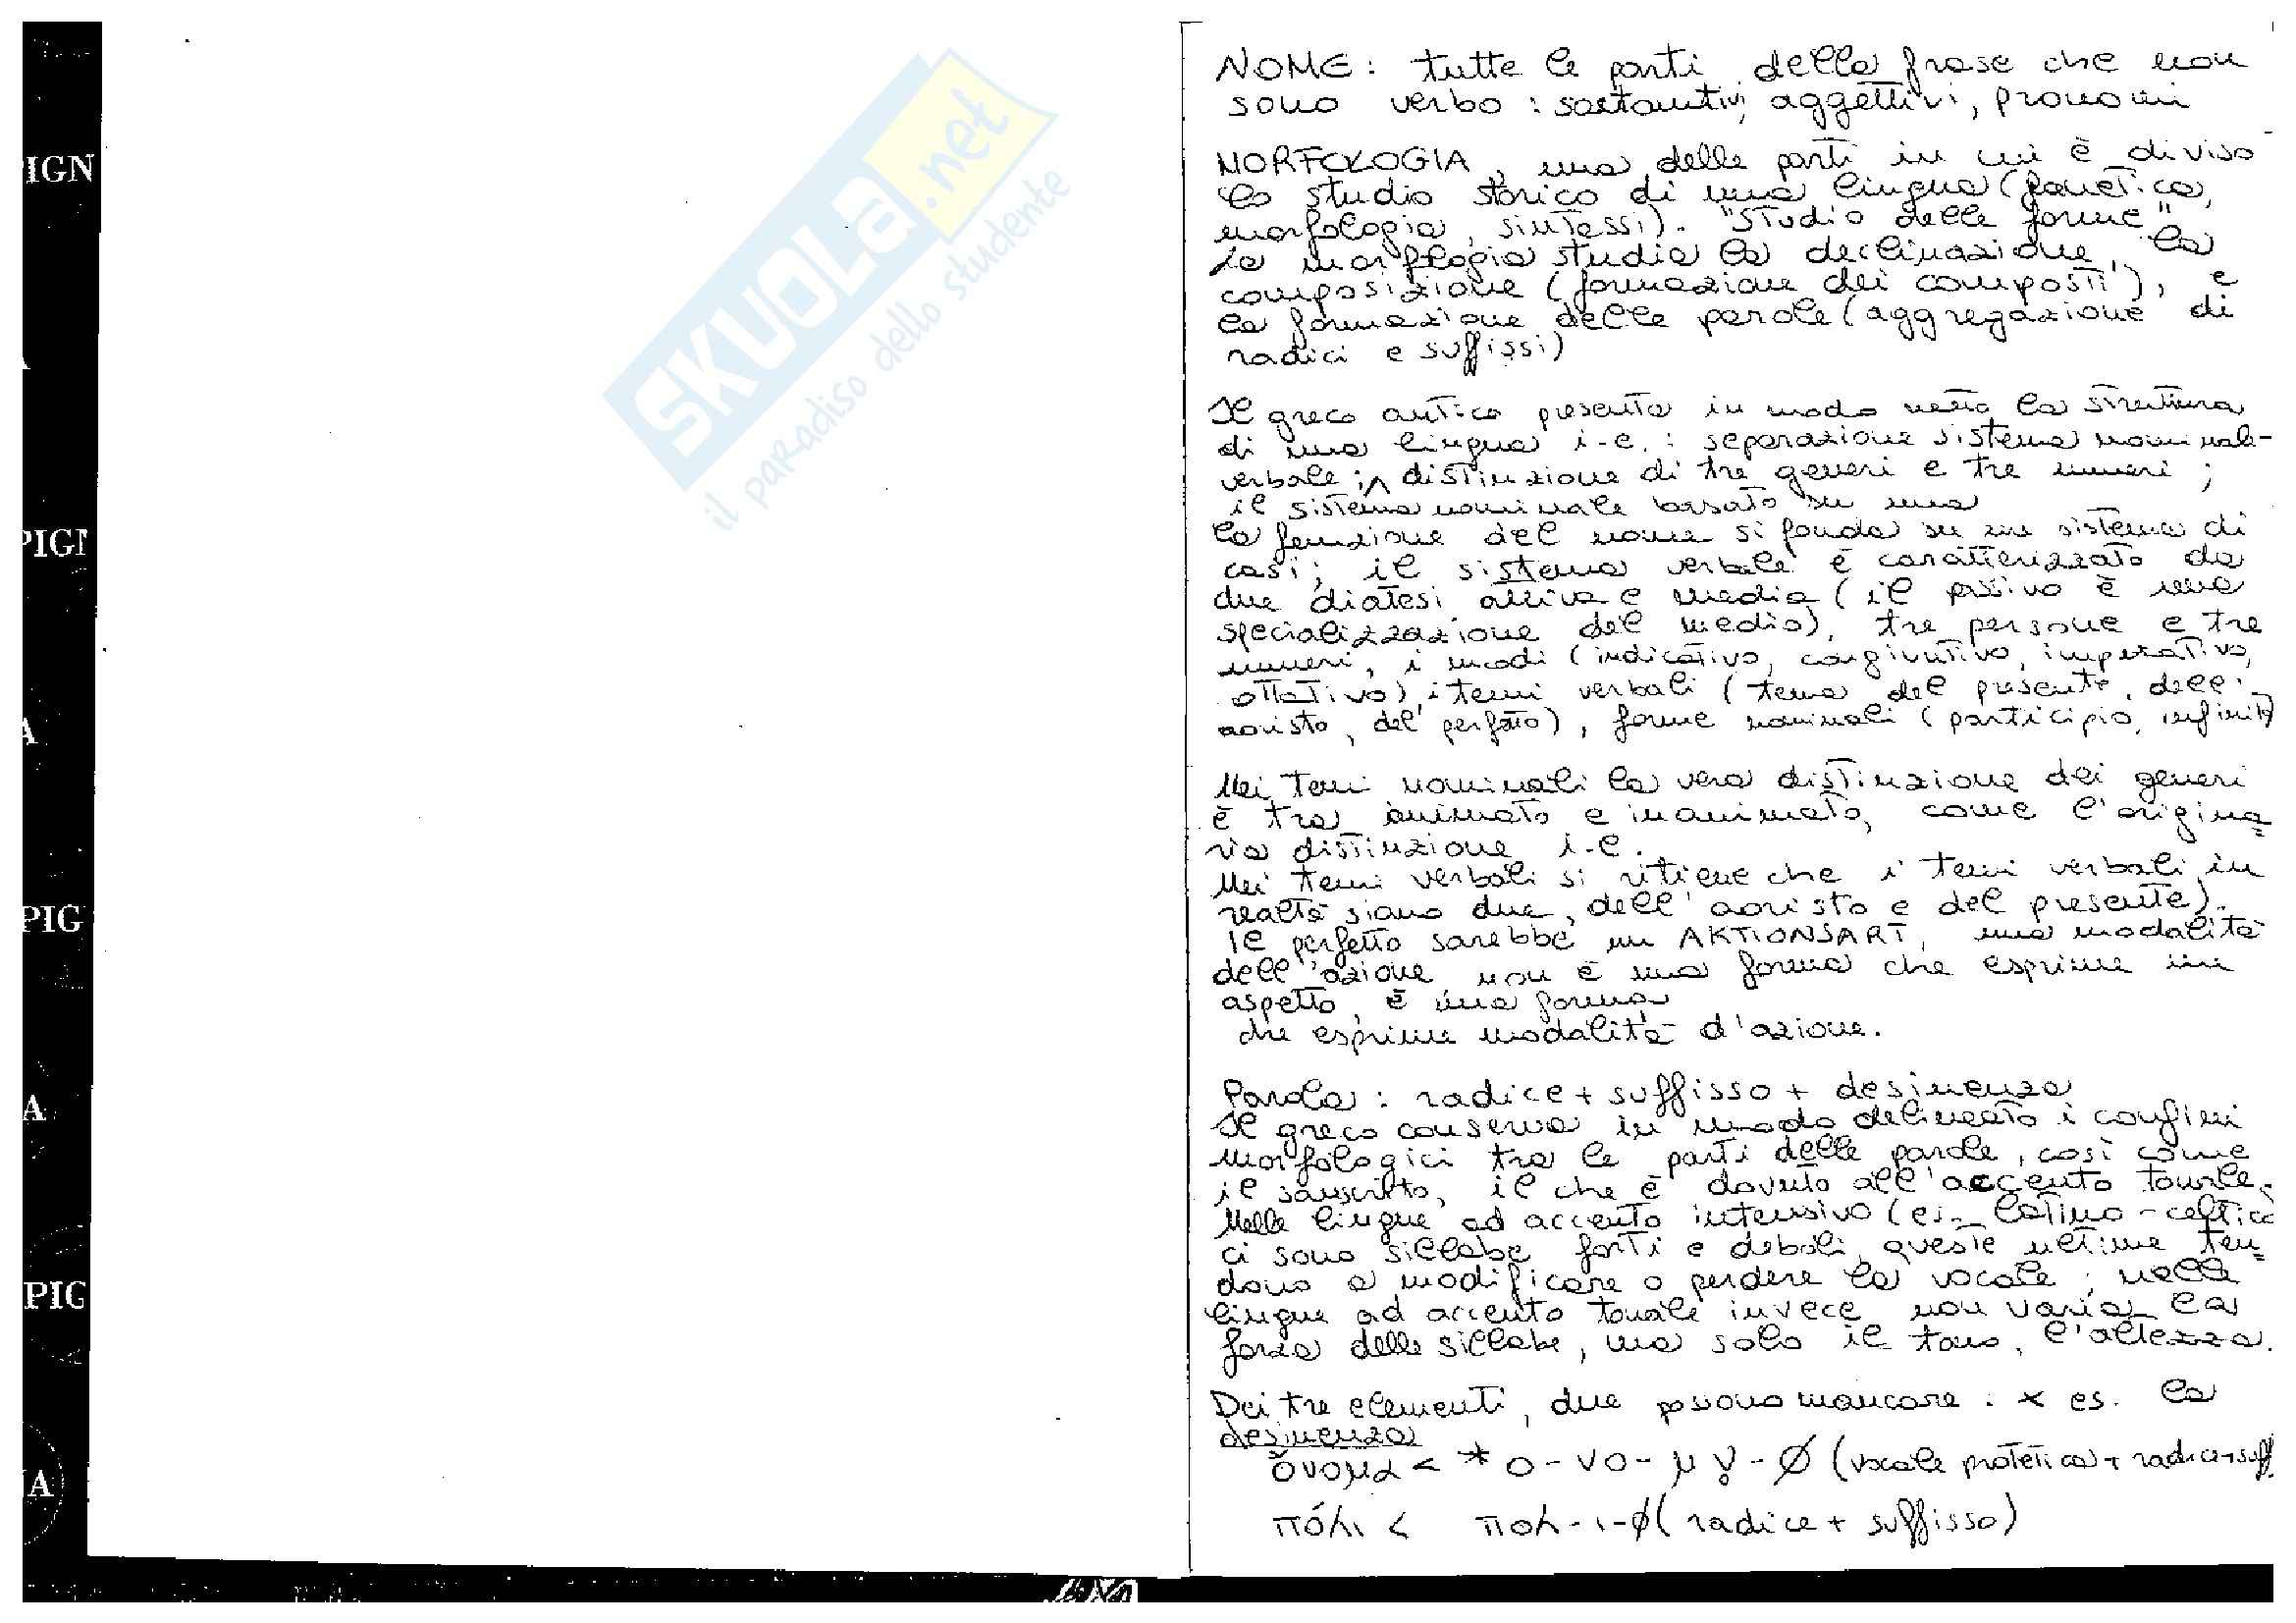 IGN
PIGN
A
PIG
A
PIG
A
SKUOLA.net
il paradiso dello studente
NOME: tutte le parti della frase che non
sono verbo: sostantivi, aggettivi, pronomi
MORFOLOGIA, una delle parti in cui è diviso
lo studio storico di una lingua (fonetica,
morfologia, sintassi). "Studio delle forme".
La morfologia studia la declinazione, la
composizione (formazione dei composti), e
la formazione delle parole (aggregazione di
radici e suffissi)
Il greco antico presenta in modo netto la struttura
di una lingua i-e.: separazione sistema nominale-
verbale; distinzione di tre generi e tre numeri;
il sistema nominale basato su una
la funzione del nome si fonda su un sistema di
casi; il sistema verbale è caratterizzato da
due diatesi attiva e media (il passivo è una
specializzazione del medio), tre persone e tre
numeri, i modi (indicativo, congiuntivo, imperativo,
ottativo), i temi verbali (tema del presente, dell'
aoristo, del perfetto), forme nominali (participio, infinito)
Nei temi nominali la vera distinzione dei generi
è tra animato e inanimato, come l'origina=
ria distinzione i-e.
Nei temi verbali si ritiene che i temi verbali in
realtà siano due, dell'aoristo e del presente).
Il perfetto sarebbe un AKTIONSART, una modalità
dell'azione non è una forma che esprime un
aspetto, è una forma
che esprime modalità d'azione.
Parola: radice + suffisso + desinenza
Il greco conserva in modo delineato i confini
morfologici tra le parti delle parole, così come
il sanscrito, il che è dovuto all'accento tonale.
Nelle lingue ad accento intensivo (es. latino-celtico
ci sono sillabe forti e deboli, queste ultime ten=
dono a modificare o perdere la vocale; nelle
lingue ad accento tonale invece non varia la
forza delle sillabe, ma solo il tono, l'altezza.
Dei tre elementi, due possono mancare: x es. la
desinenza
ὄνομα < * ο-νο-μν̥-Ø (vocale protetica + radice + suff.
πόλι < πολ-ι-Ø (radice + suffisso)